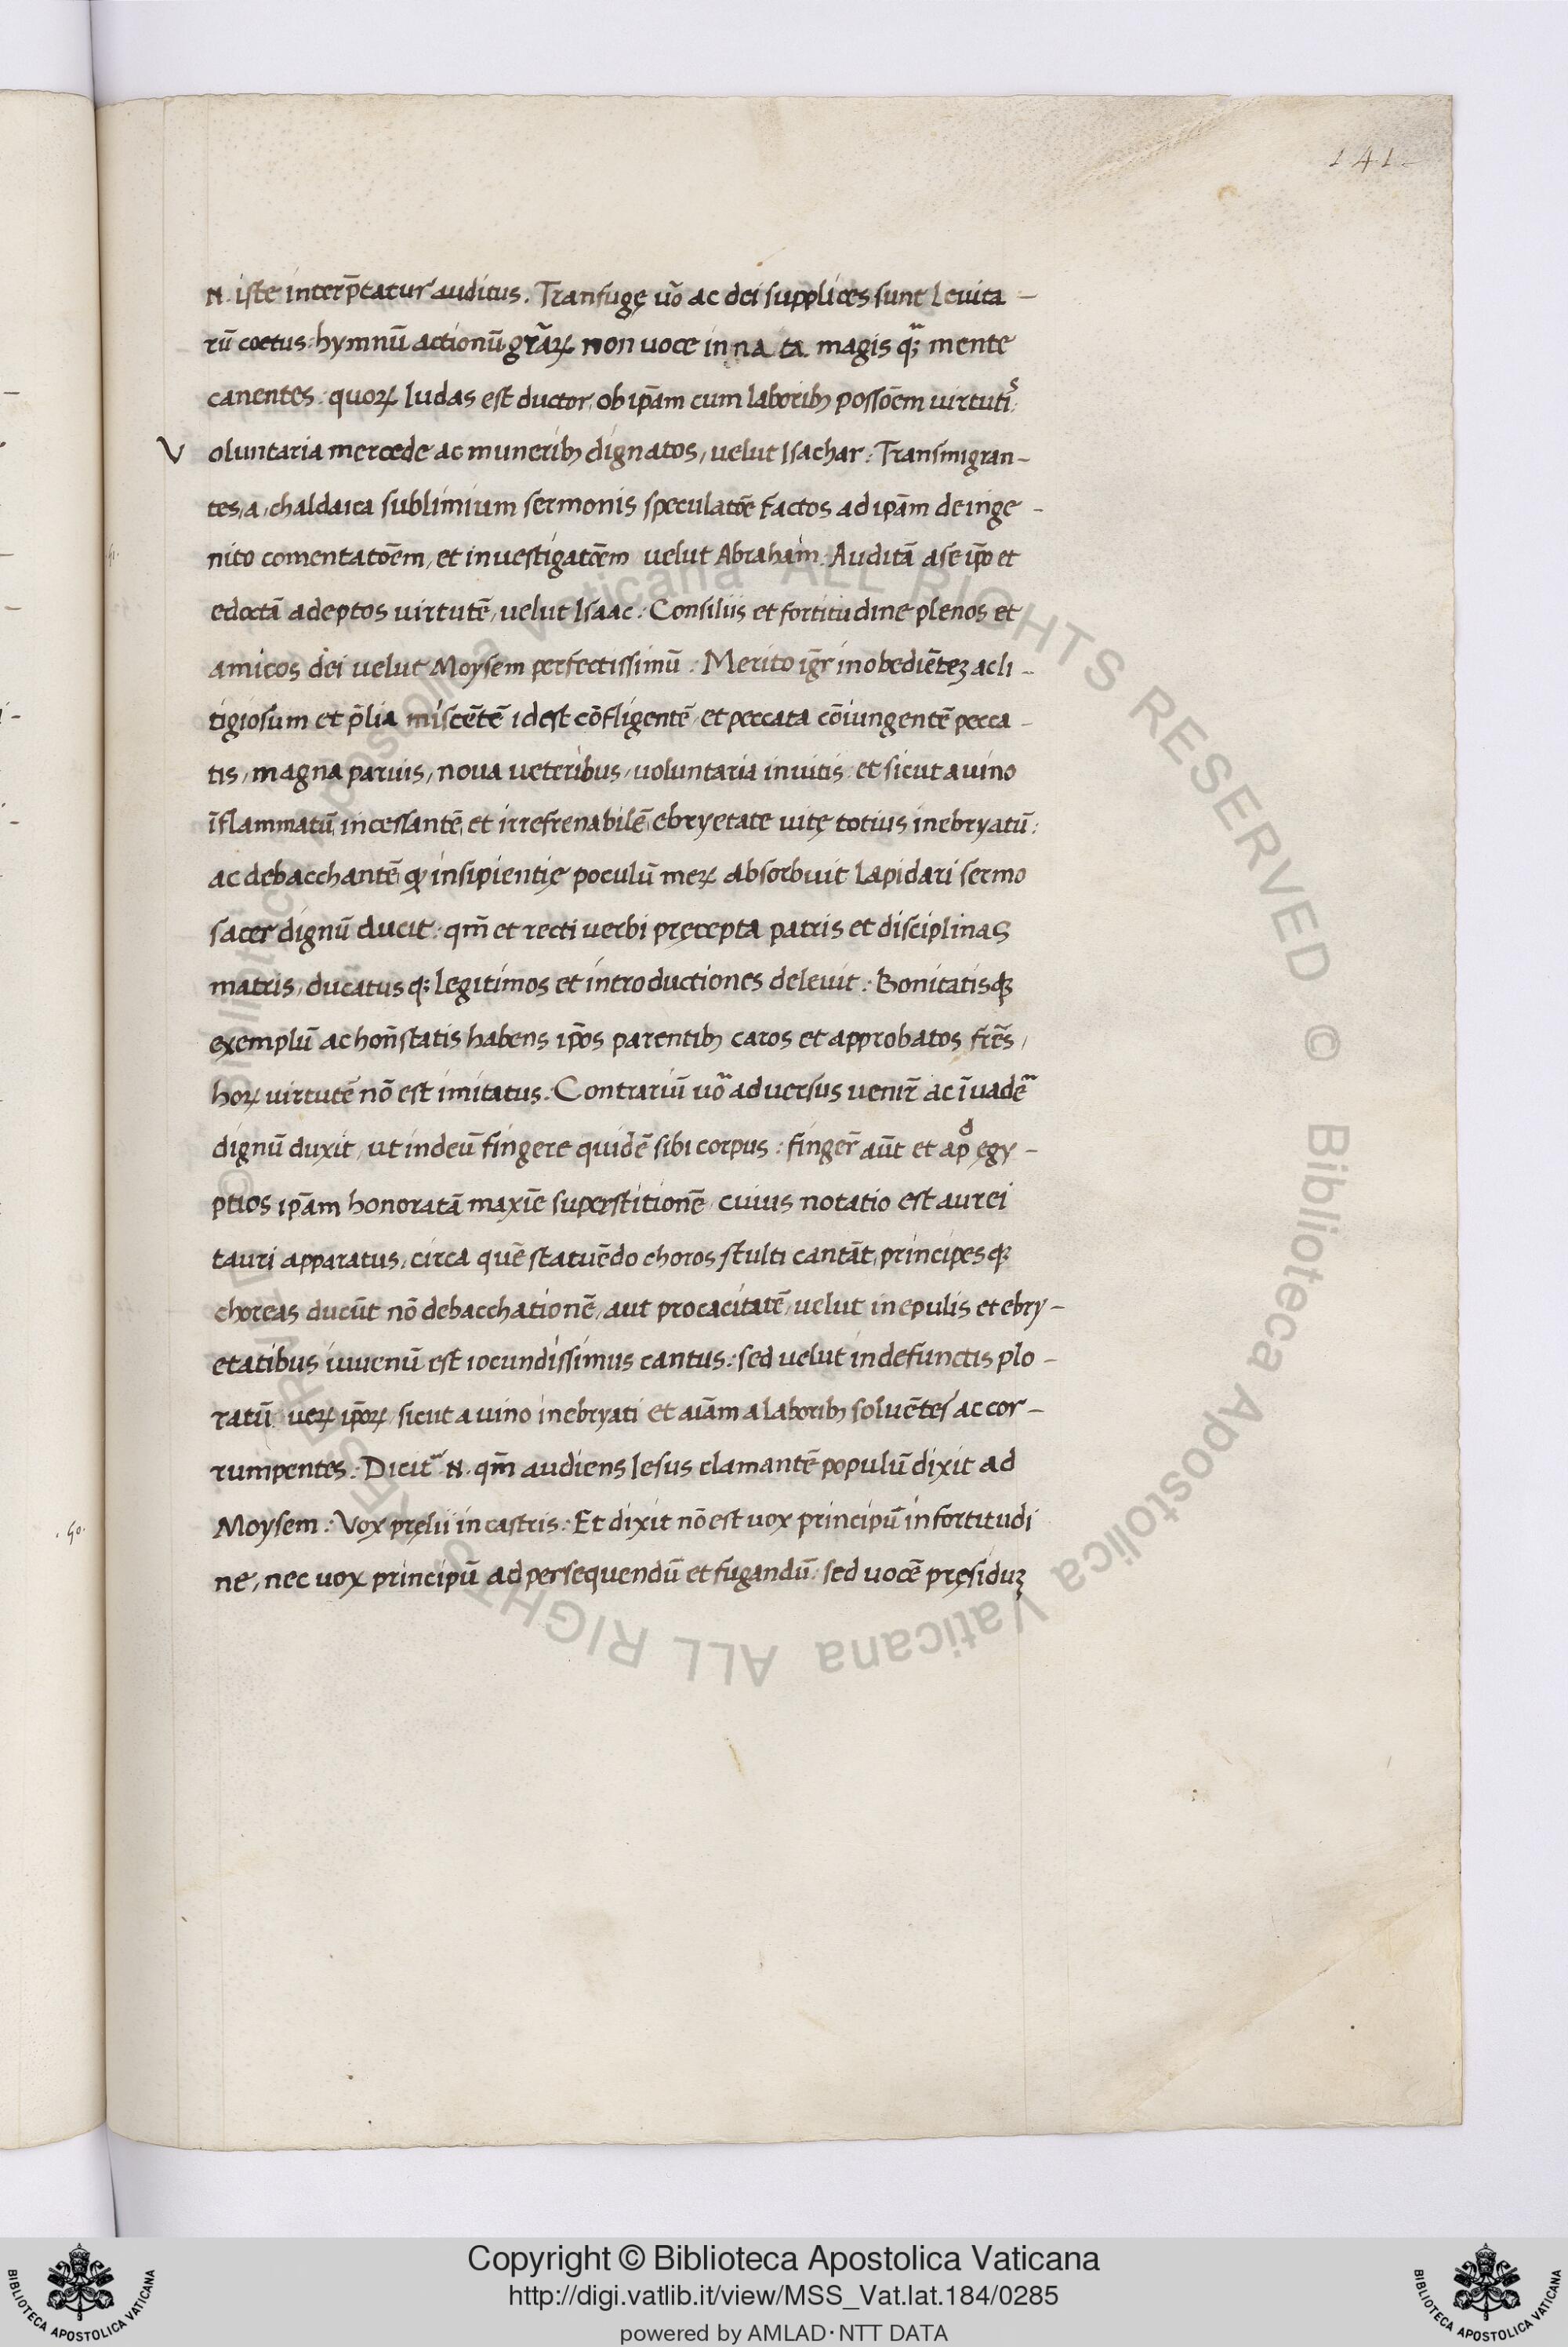 141
N. iste interp̄tatur auditus. Tranfugę uō ac dei supplices sunt Leuita-
rū coetus: hymnū actionū grāꝝ non uoce inna ta magis q; mente
canentes: quoꝝ Iudas est ductor, ob ip̄am cum laborib; possōem uirtuti
Voluntaria mercede ac munerib; dignatos, uelut Isachar: Transmigran-
tes, a, chaldaica sublimium sermonis speculatōe factos ad ip̄am de inge-
nito comentatōem, et inuestigatōem uelut Abraham. Auditā a se ip̄o et
edoctā adeptos uirtutē, uelut Isaac: Consiliis et fortitudine plenos et
amicos dei uelut Moysem perfectissimū: Merito igr̄ inobediētez ac li-
tigiosum et p̄lia miscētē idest cōfligentē, et peccata cōiungentē pecca-
tis, magna paruis, noua ueteribus, uoluntaria inuitis: et sicut a uino
īflammatū, incessantē, et irrefrenabilē, ebryetate uitę totius inebryatū:
ac debacchantē, qꝫ insipientię poculū meꝝ absorbuit Lapidari sermo
sacer dignū ducit: qm̄ et recti uerbi pręcepta patris et disciplinas
matris, ducatus q; legitimos et introductiones deleuit: Bonitatisqꝫ
exemplū ac hon̄statis habens ip̄os parentib; caros et approbatos fr̄es,
hoꝝ uirtutē nō est imitatus. Contrariū uō aduersus uenir̄ ac īuade
dignū duxit, ut indeū fingere quidē sibi corpus: finger̄ aūt et ap̄d egy-
ptios ip̄am honoratā maxīe superstitionē, cuius notatio est aurei
tauri apparatus, circa quē statuēdo choros stulti cantāt, principesqꝫ
choreas ducūt nō debacchationē, aut procacitatē, uelut in epulis et ebry-
etatibus iuuenū est iocundissimus cantus: sed uelut in defunctis plo-
ratū ueꝝ ip̄oꝝ, sicut a uino inebryati et aīam a laborib; soluētes ac cor-
rumpentes: Dicit N. qm̄ audiens Iesus clamantē populū dixit ad
Moysem: Vox pręlii in castris: Et dixit nō est uox principū in fortitudi
ne, nec uox principū ad persequendū et fugandū: sed uocē pręsiduꝫ
.50.
© Biblioteca Apostolica Vaticana ALL RIGHTS RESERVED © Biblioteca Apostolica Vaticana ALL RIGHTS RESERVED
Copyright © Biblioteca Apostolica Vaticana
http://digi.vatlib.it/view/MSS_Vat.lat.184/0285
powered by AMLAD·NTT DATA
BIBLIOTECA APOSTOLICA VATICANA
BIBLIOTECA APOSTOLICA VATICANA